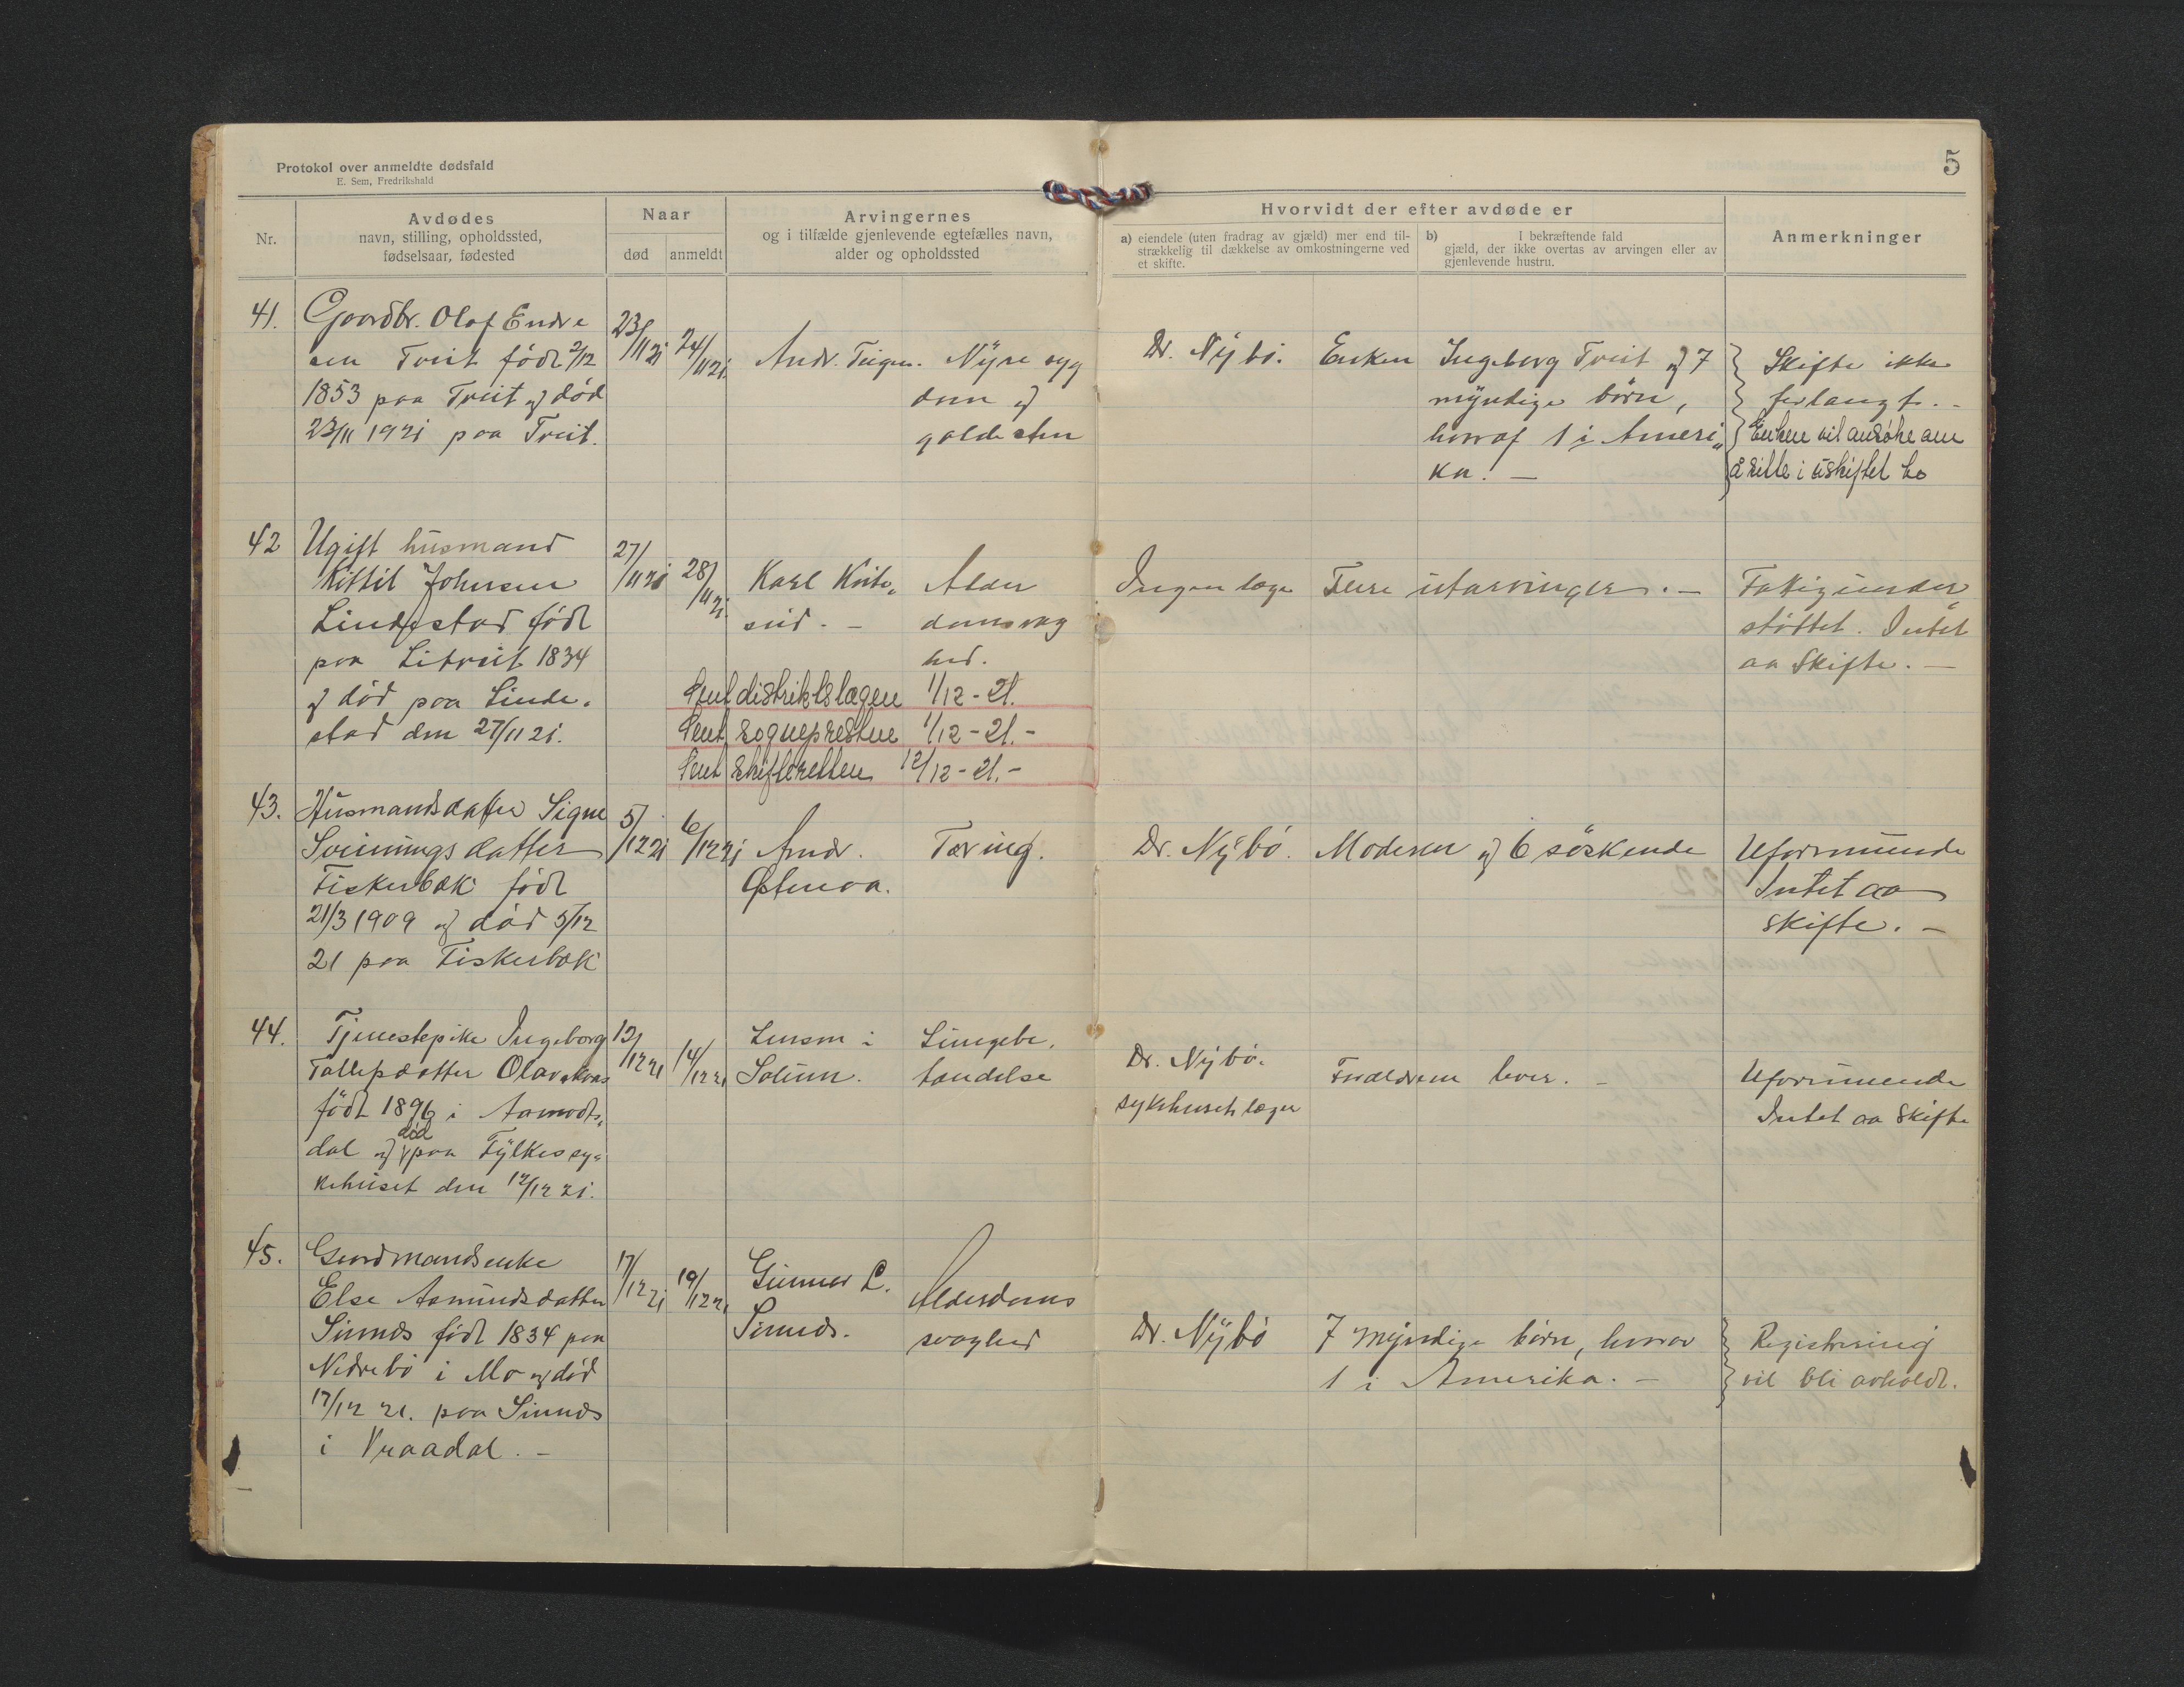 Protokol over anmeldte dødsfald
E. Sem, Fredrikshald
5
Nr.
Avdødes
navn, stilling, opholdssted,
fødselsaar, fødested
Naar
død
anmeldt
Arvingernes
og i tilfælde gjenlevende egtefælles navn,
alder og opholdssted
Hvorvidt der efter avdøde er
a) eiendele (uten fradrag av gjæld) mer end til-
strækkelig til dækkelse av omkostningerne ved
et skifte.
b) I bekræftende fald
gjæld, der ikke overtas av arvingen eller av
gjenlevende hustru.
Anmerkninger
41.
Gaardbr. Olaf Endre
sen Tveit født 2/12
1853 paa Tveit og död
23/11 1921 paa Tveit.
23/11 21
24/11 21.
Andr. Teigen.
Nyre syg
dom og
galdesten
Dr. Nybö.
Enken Ingeborg Tveit og 7
myndige börn,
hvoraf 1 i Ameri„
ka. —
Skifte ikke
forlangt. -
Enken vil ansöke om
å sitte i uskiftet bo
42
Ugift husmand
Kittil Johnsen
Lindestad född
paa Litveit 1834
og död paa Linde„
stad den 27/11 21.
27/11 21
28/11 21.
Karl Kvite„
seid. —
Alder
domsvag
hed.
Ingen læge
Flere utarvinger. —
Fattigunder„
støttet. Intet
aa Skifte. —
Sent distriktslægen 1/12 - 21.
Sent sogneprestne 1/12 - 21. -
Sent skifteretten 12/12 - 21. -
43.
Husmandsdatter Signe
Sveinungsdatter
Fiskerbæk född
21/3 1909 og död 5/12
21 paa Fiskerbæk
5/12 21
6/12 21
Andr.
Østenaa.
Tæring.
Dr. Nybö.
Moderen og 6 söskende
Uformuende
Intet aa
skifte. —
44.
Tjenestepike Ingeborg
Tallepsdatter Olavskaas
född 1896 i Aamodts„
dal og död paa Fylkessy„
kehuset den 12/12 21.
12/12 21
14/12 21
Lensm i
Solum.
Lungebe„
tændelse
Dr. Nybö.
sykehusets læger
Forældrene lever. —
Uformuende
Intet aa Skifte
45.
Gaardmandsenke
Else Aamundsdatter
Sinnes född 1834 paa
Nedrebö i Mo og död
17/12 21. paa Sinnes
i Vraadal. —
17/12 21
19/12 21
Gunnar L.
Sinnes.
Alderdoms
svaghed
Dr. Nybö
7 myndige börn, hvorav
1 i Amerika. —
Registrering
vil bli avholdt.